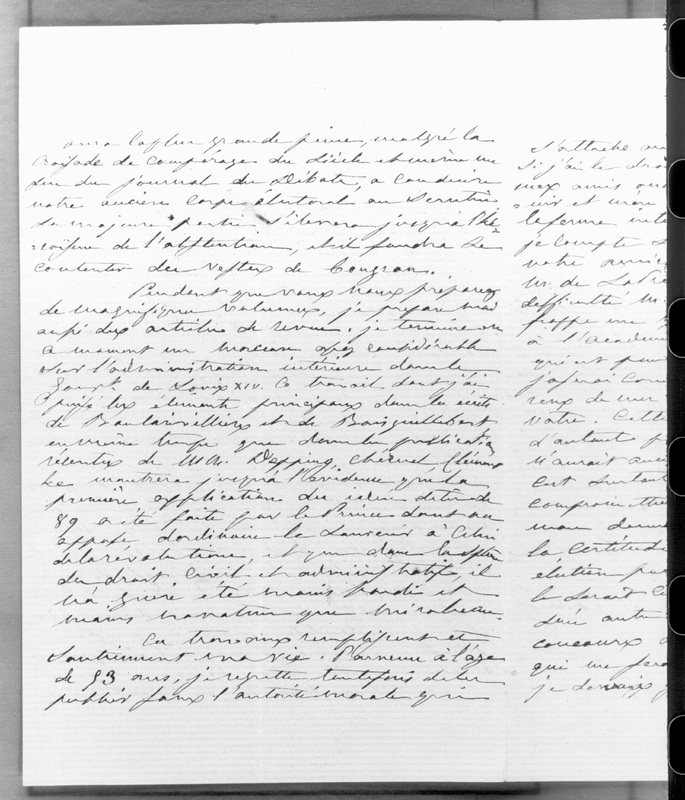 aura la plus grande peine, malgré la
croisade de compérages du Siècle et même un
peu du journal des Débats, a conduire
notre ancien corps électoral au Scrutin
Sa majeure partie s'élevera jusqu'à l'hé-
=roïsme de l'abstention, et il faudra se
contenter des
Pendant que vous nous préparez
de magnifiques volumes, je prépare moi
aussi des articles de revue. je termine en
ce moment un morceau assez considérable
sur l'administration intérieure dans le
Gouvt. de Louis XIV. Ce travail dont j'ai
puisé les éléments principaux dans les écrits
de Boulainvilliers et de Boisguillebert
en même temps que dans les publications
récentes de MM. Depping, Chéruel, Clément
montrera jusqu'à l'évidence que la
première application des idées dites de
89 a été faite par le Prince dont on
oppose d'ordinaire le Souvenir à Celui
de la révolution, et que dans la
du droit Civil et administratif, il
n'a guère été moins hardi et
moins novateur que Mirabeau.
Ces travaux remplissent et
Soutiennent ma vie. Parvenu à l'âge
de 53 ans, je regrette toutefois de les
publier sans l'autorité morale que
s'attache au
Si j'ai le droi
mes amis
et mon
je compte
notre
M. de
difficulté M.
frappe
à l'académ
qui
j'oserai
reux de
votre. Cette
d'autant p
n'aurait auc
est surtout
compromettre
mon
la certitude
élection
le serait
autre
concours
qui me
je